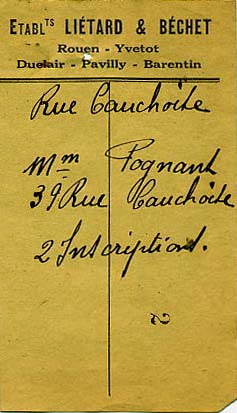 ETABL.TS LIÉTARD & BÉCHET
Rouen - Yvetot
Duclair - Pavilly - Barentin
Rue Cauchoise
Mm Pognant
39 Rue Cauchoise
2 Inscriptions.
2